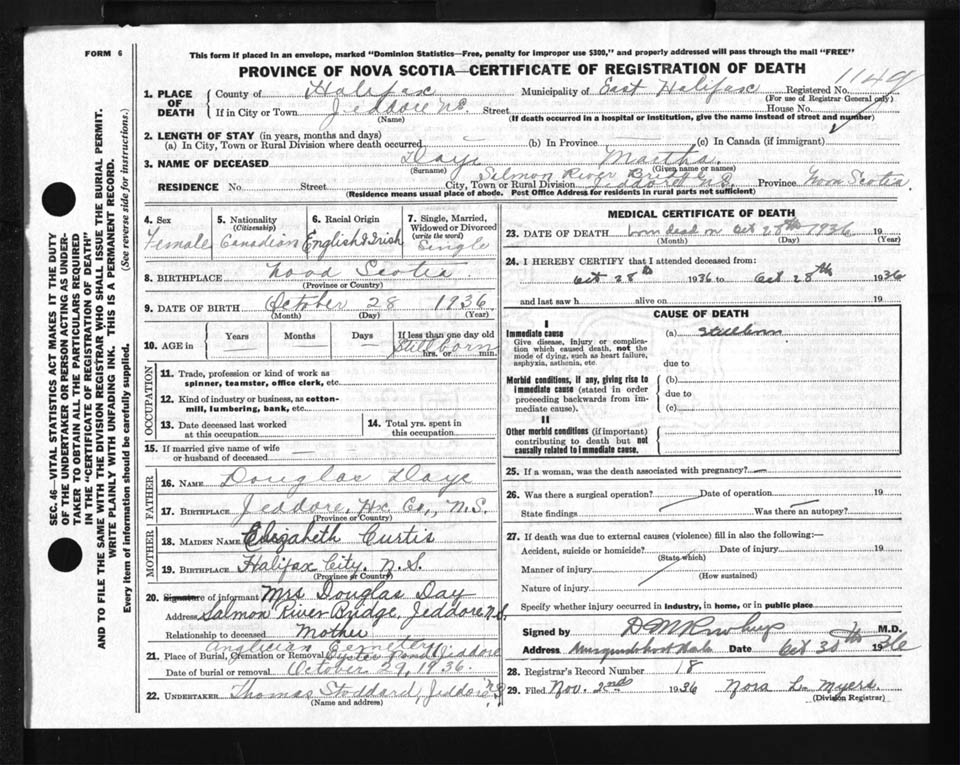 FORM 6
This form if placed in an envelope, marked "Dominion Statistics—Free, penalty for improper use $300," and properly addressed will pass through the mail "FREE"
PROVINCE OF NOVA SCOTIA—CERTIFICATE OF REGISTRATION OF DEATH
1149
1. PLACE OF DEATH
County of Halifax Municipality of East Halifax Registered No.
(For use of Registrar General only)
If in City or Town Jeddore N.S. Street House No.
(Name) (If death occurred in a hospital or institution, give the name instead of street and number)
2. LENGTH OF STAY (in years, months and days)
(a) In City, Town or Rural Division where death occurred — (b) In Province — (c) In Canada (if immigrant)
3. NAME OF DECEASED Daye Martha.
(Surname) (Given name or names)
Salmon River Bridge
RESIDENCE No. Street City, Town or Rural Division Jeddore N.S. Province Nova Scotia
(Residence means usual place of abode. Post Office Address for residents in rural parts not sufficient)
4. Sex
Female
5. Nationality
(Citizenship)
Canadian
6. Racial Origin
English & Irish
7. Single, Married, Widowed or Divorced
(write the word)
Single
8. BIRTHPLACE Nova Scotia
(Province or Country)
9. DATE OF BIRTH October 28 1936
(Month) (Day) (Year)
10. AGE in
Years Months Days If less than one day old
Stillborn
hrs. or min.
OCCUPATION
11. Trade, profession or kind of work as spinner, teamster, office clerk, etc.
12. Kind of industry or business, as cotton-mill, lumbering, bank, etc.
13. Date deceased last worked at this occupation
14. Total yrs. spent in this occupation
15. If married give name of wife or husband of deceased — —
FATHER
16. NAME Douglas Daye
17. BIRTHPLACE Jeddore, Hx Co., N.S.
(Province or Country)
MOTHER
18. MAIDEN NAME Elizabeth Curtis
19. BIRTHPLACE Halifax City, N.S.
(Province or Country)
20. Signature of informant Mrs Douglas Day
Address Salmon River Bridge, Jeddore N.S.
Relationship to deceased Mother
Anglican Cemetery
21. Place of Burial, Cremation or Removal Oyster Pond Jeddore
Date of burial or removal October 29, 1936.
22. UNDERTAKER Thomas Stoddard, Jeddore N.S.
(Name and address)
MEDICAL CERTIFICATE OF DEATH
23. DATE OF DEATH born dead on Oct 28th 1936 19
(Month) (Day) (Year)
24. I HEREBY CERTIFY that I attended deceased from:
Oct 28th 1936 to Oct 28th 1936
and last saw h alive on 19
CAUSE OF DEATH
I
Immediate cause
Give disease, injury or complication which caused death, not the mode of dying, such as heart failure, asphyxia, asthenia, etc.
(a) Stillborn
due to
Morbid conditions, if any, giving rise to immediate cause (stated in order proceeding backwards from immediate cause).
(b)
due to
(c)
II
Other morbid conditions (if important) contributing to death but not causally related to Immediate cause.
25. If a woman, was the death associated with pregnancy? —
26. Was there a surgical operation? Date of operation 19
State findings Was there an autopsy?
27. If death was due to external causes (violence) fill in also the following:—
Accident, suicide or homicide? Date of injury 19
(State which)
Manner of injury
(How sustained)
Nature of injury
Specify whether injury occurred in industry, in home, or in public place
Signed by M.D.
Address Date Oct 30th 1936
28. Registrar's Record Number 18
29. Filed Nov. 2nd 1936 Nora L. Myers.
(Division Registrar)
SEC. 46—VITAL STATISTICS ACT MAKES IT THE DUTY
OF THE UNDERTAKER OR PERSON ACTING AS UNDER-
TAKER TO OBTAIN ALL THE PARTICULARS REQUIRED
IN THE "CERTIFICATE OF REGISTRATION OF DEATH"
AND TO FILE THE SAME WITH THE DIVISION REGISTRAR WHO SHALL ISSUE THE BURIAL PERMIT.
WRITE PLAINLY WITH UNFADING INK. THIS IS A PERMANENT RECORD.
Every item of information should be carefully supplied. (See reverse side for instructions.)